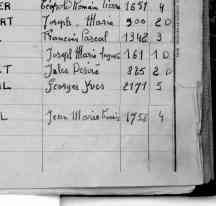 ER Léopold Romain Pierre 1651 4
RT Joseph Marie 900 20
François Pascal 1342 3
Joseph Marie 161 10
T Jules Désiré 325 20
L Georges Yves 2171 5
L Jean Marie 1756 4